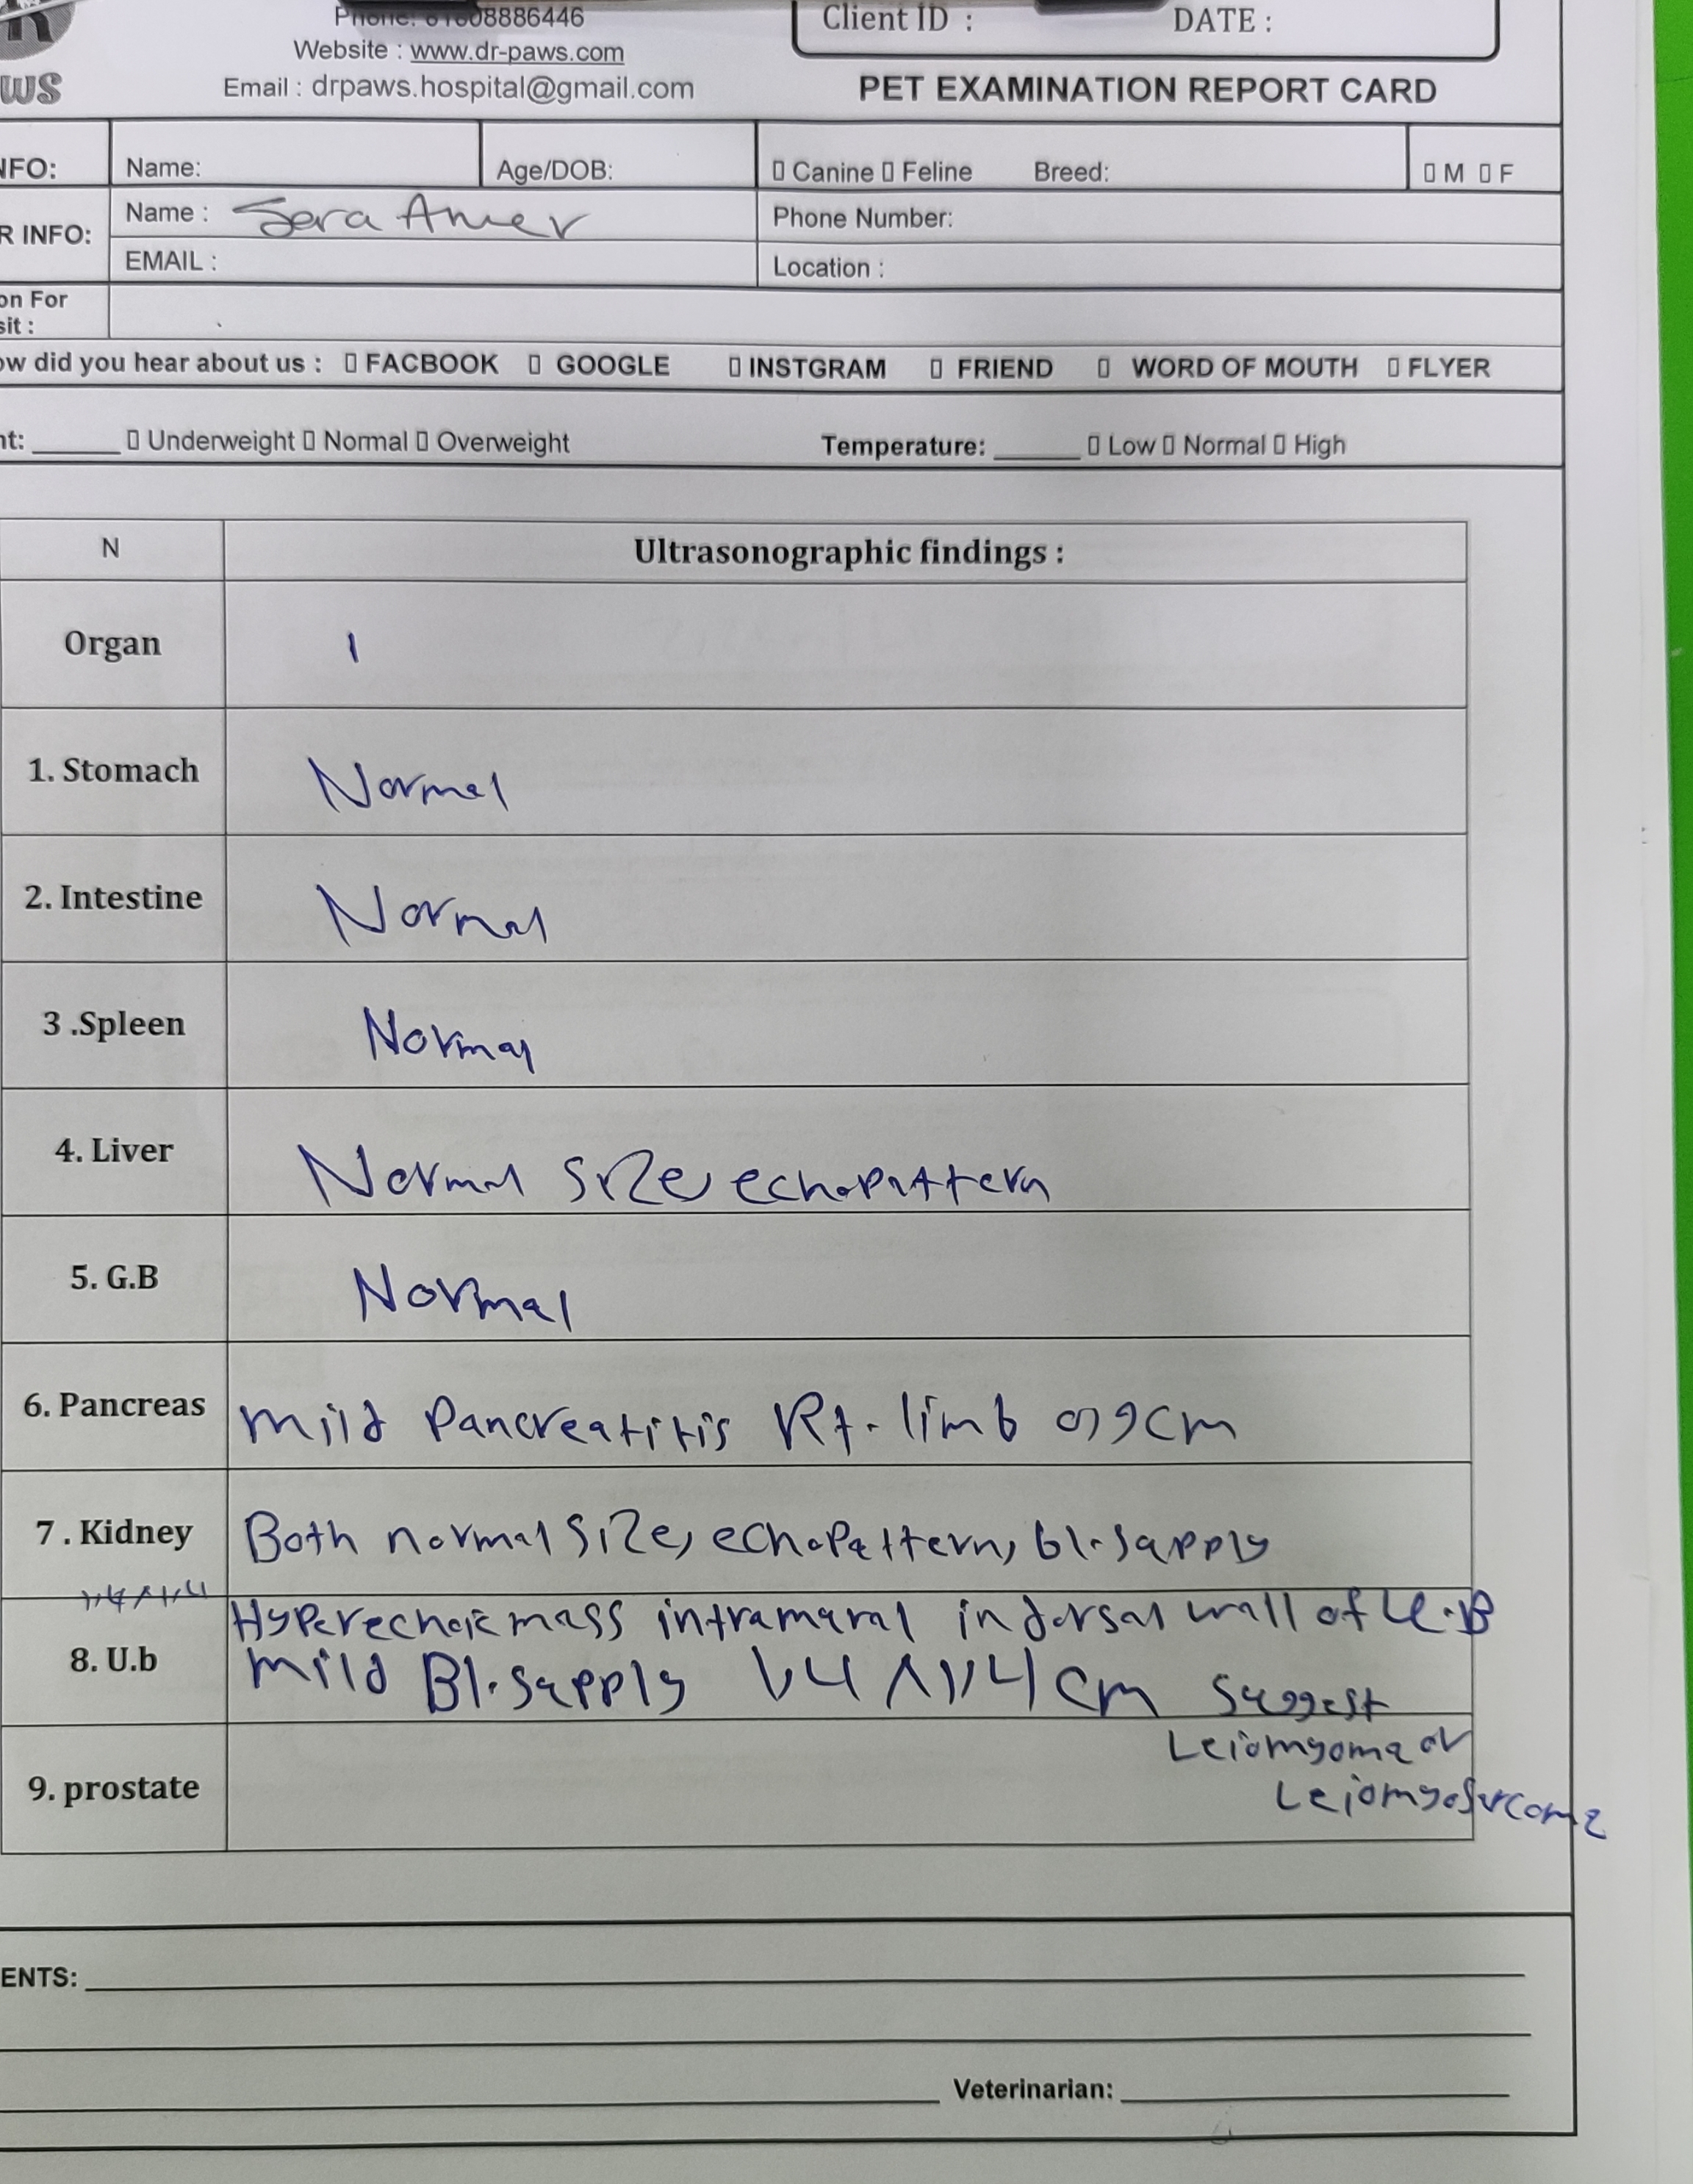 Phone: 01008886446
Client ID : DATE :
Website : www.dr-paws.com
Email : drpaws.hospital@gmail.com
PET EXAMINATION REPORT CARD
NFO: Name: Age/DOB: Canine Feline Breed: M F
R INFO: Name : Sara Amer Phone Number:
EMAIL : Location :
on For
sit :
ow did you hear about us : FACBOOK GOOGLE INSTGRAM FRIEND WORD OF MOUTH FLYER
nt: Underweight Normal Overweight Temperature: Low Normal High
N Ultrasonographic findings :
Organ
1. Stomach Normal
2. Intestine Normal
3 .Spleen Normal
4. Liver Normal Size, echopattern
5. G.B Normal
6. Pancreas mild Pancreatitis Rt. limb 0,9cm
7 . Kidney Both normal Size, echopattern, bl. supply
Hyperechoic mass intramural in dorsal wall of U.B
8. U.b mild Bl. supply 1,4 X 1,4 cm suggest
Leiomyoma or
9. prostate Leiomyosarcoma
ENTS:
Veterinarian: